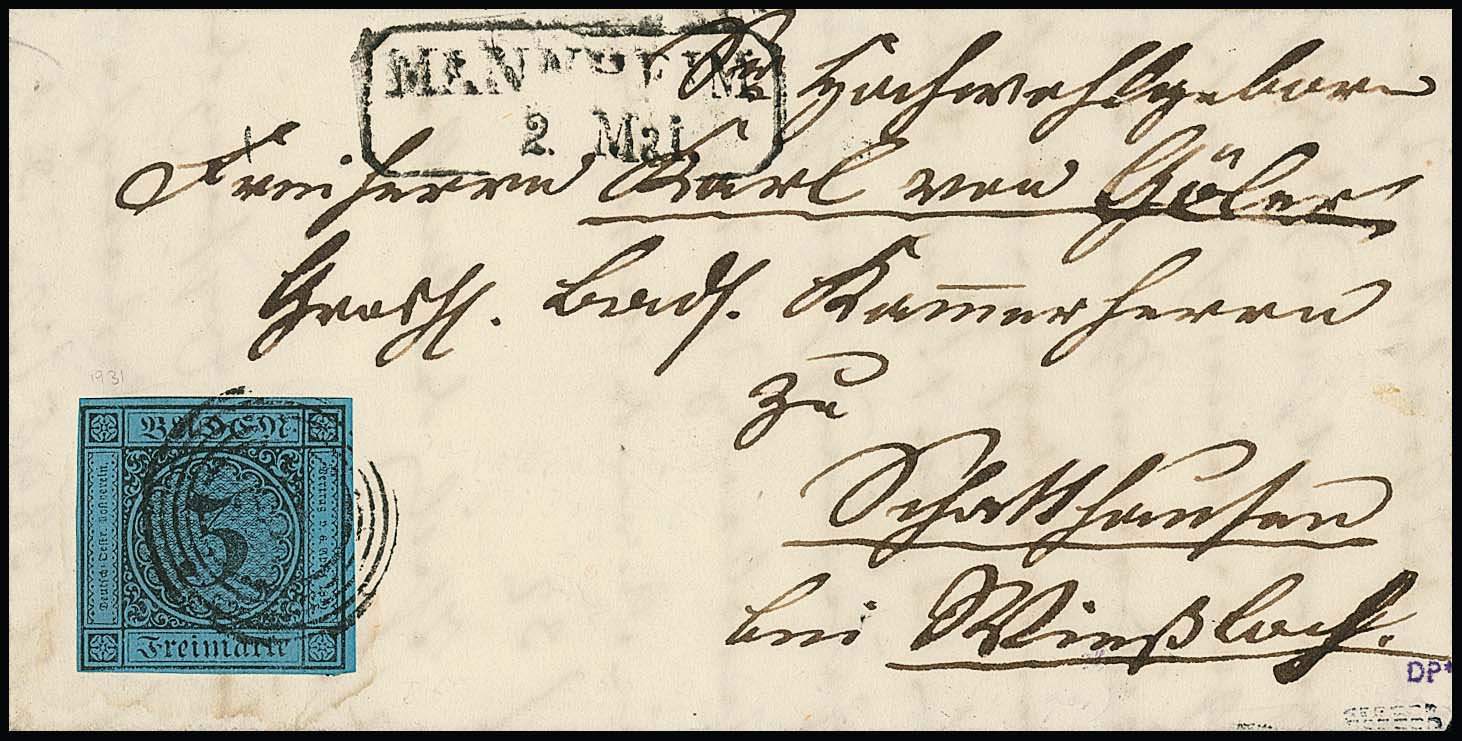 MANNHEIM
2. Mai
Sr. Hochwohlgeboren
Freiherrn Karl von Göler
Grosh. Bad. Kammerherrn
zu
Schatthausen
bei Wießloch.
1931
BADEN.
Deutsch-Oestr. Postverein.
3
Vertrag v. 6 April 1850
Freimarke
DP*